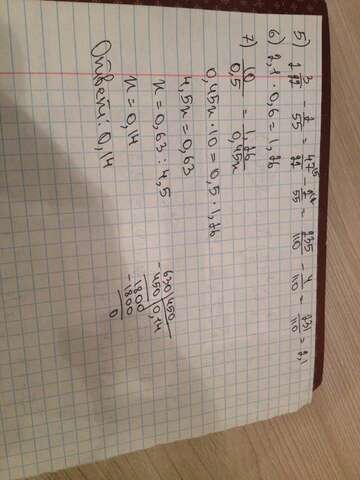 5) 2 3/22 - 2/55 = 47/22 - 2/55 = 235/110 - 4/110 = 231/110 = 2,1
6) 2,1 · 0,6 = 1,26
7) 10/0,5 = 1,26/0,45x
0,45x · 10 = 0,5 · 1,26
4,5x = 0,63
x = 0,63 : 4,5
x = 0,14
Ответ: 0,14
630 | 450
- 450 | 0,14
1800
- 1800
0